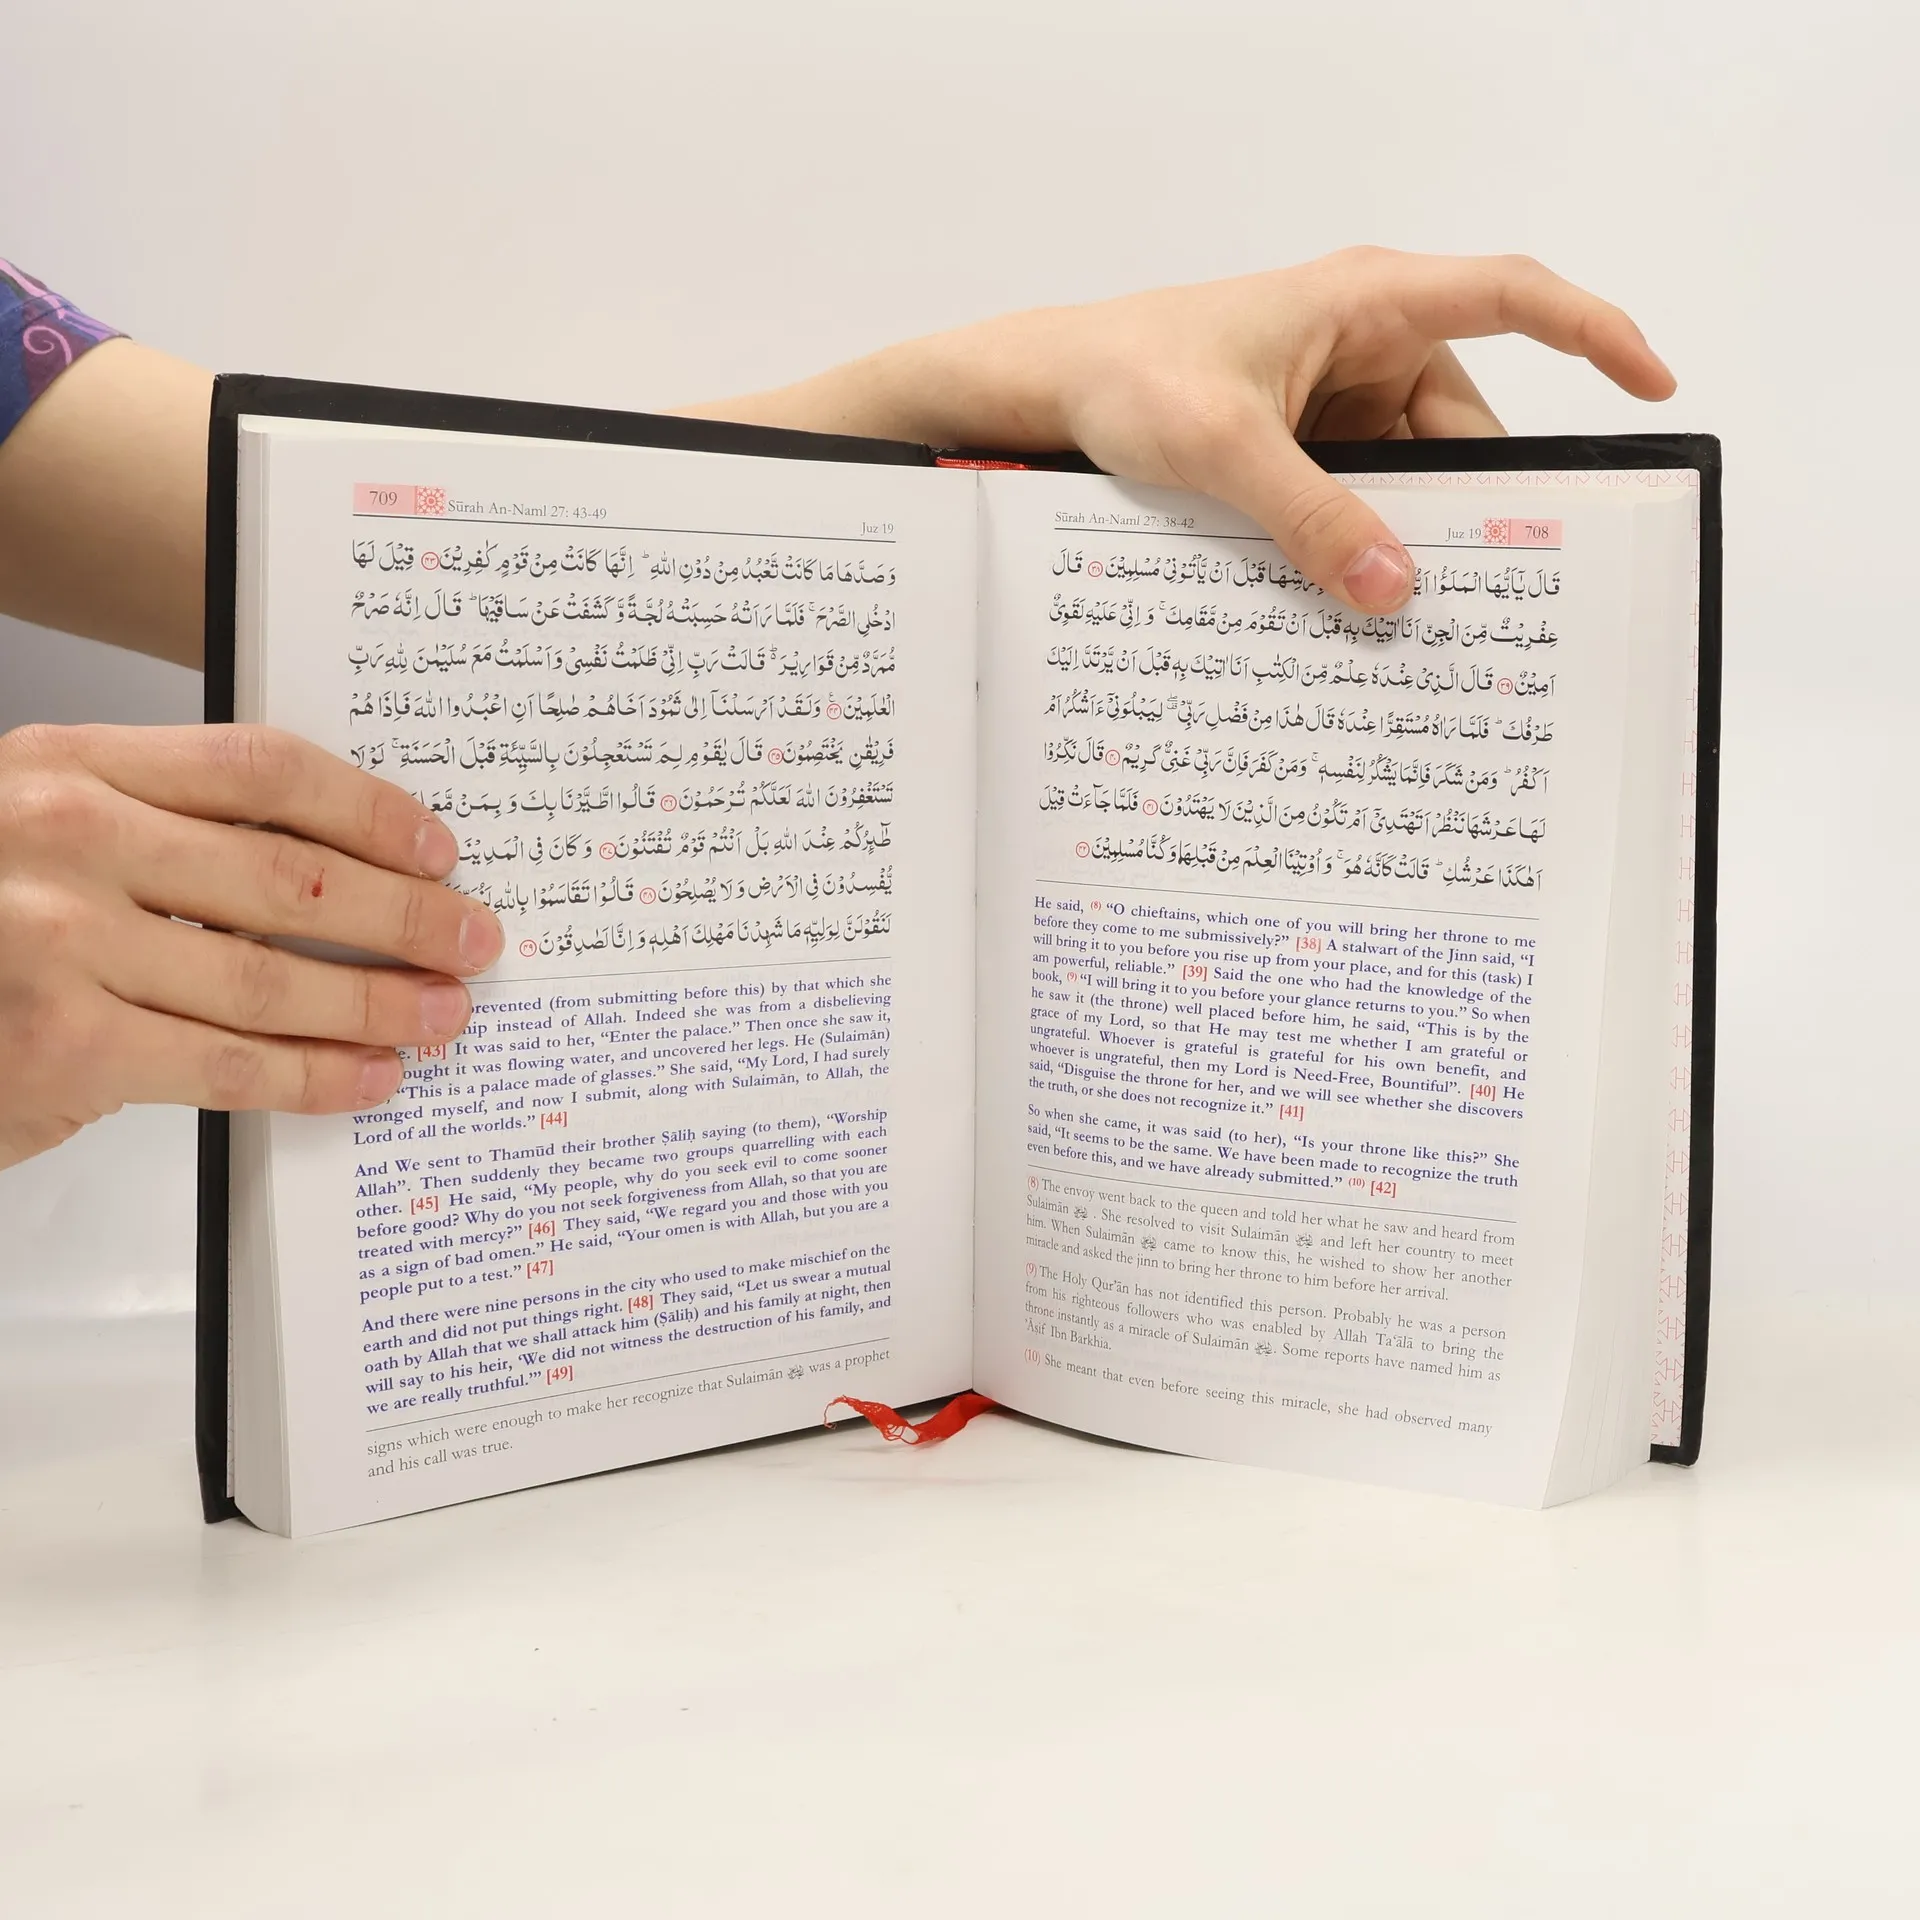 Sūrah An-Naml 27: 38-42 Juz 19 708
قَالَ يٰۤاَيُّهَا الْمَلَؤُا قَبْلَ اَنْ يَّاْتُوْنِيْ مُسْلِمِيْنَ ۝٣٨ قَالَ
عِفْرِيْتٌ مِّنَ الْجِنِّ اَنَا اٰتِيْكَ بِهٖ قَبْلَ اَنْ تَقُوْمَ مِنْ مَّقَامِكَ ۚ وَ اِنِّيْ عَلَيْهِ لَقَوِيٌّ
اَمِيْنٌ ۝٣٩ قَالَ الَّذِيْ عِنْدَهٗ عِلْمٌ مِّنَ الْكِتٰبِ اَنَا اٰتِيْكَ بِهٖ قَبْلَ اَنْ يَّرْتَدَّ اِلَيْكَ
طَرْفُكَ ؕ فَلَمَّا رَاٰهُ مُسْتَقِرًّا عِنْدَهٗ قَالَ هٰذَا مِنْ فَضْلِ رَبِّيْ ۖ۫ لِيَبْلُوَنِيْۤ ءَاَشْكُرُ اَمْ
اَكْفُرُ ؕ وَمَنْ شَكَرَ فَاِنَّمَا يَشْكُرُ لِنَفْسِهٖ ۚ وَمَنْ كَفَرَ فَاِنَّ رَبِّيْ غَنِيٌّ كَرِيْمٌ ۝٤٠ قَالَ نَكِّرُوْا
لَهَا عَرْشَهَا نَنْظُرْ اَتَهْتَدِيْۤ اَمْ تَكُوْنُ مِنَ الَّذِيْنَ لَا يَهْتَدُوْنَ ۝٤١ فَلَمَّا جَآءَتْ قِيْلَ
اَهٰكَذَا عَرْشُكِ ؕ قَالَتْ كَاَنَّهٗ هُوَ ۚ وَ اُوْتِيْنَا الْعِلْمَ مِنْ قَبْلِهَا وَ كُنَّا مُسْلِمِيْنَ ۝٤٢
He said, (8) “O chieftains, which one of you will bring her throne to me
before they come to me submissively?” [38] A stalwart of the Jinn said, “I
will bring it to you before you rise up from your place, and for this (task) I
am powerful, reliable.” [39] Said the one who had the knowledge of the
book, (9) “I will bring it to you before your glance returns to you.” So when
he saw it (the throne) well placed before him, he said, “This is by the
grace of my Lord, so that He may test me whether I am grateful or
ungrateful. Whoever is grateful is grateful for his own benefit, and
whoever is ungrateful, then my Lord is Need-Free, Bountiful”. [40] He
said, “Disguise the throne for her, and we will see whether she discovers
the truth, or she does not recognize it.” [41]
So when she came, it was said (to her), “Is your throne like this?” She
said, “It seems to be the same. We have been made to recognize the truth
even before this, and we have already submitted.” (10) [42]
(8) The envoy went back to the queen and told her what he saw and heard from
Sulaimān ﷺ. She resolved to visit Sulaimān ﷺ and left her country to meet
him. When Sulaimān ﷺ came to know this, he wished to show her another
miracle and asked the jinn to bring her throne to him before her arrival.
(9) The Holy Qur’ān has not identified this person. Probably he was a person
from his righteous followers who was enabled by Allah Ta‘ālā to bring the
throne instantly as a miracle of Sulaimān ﷺ. Some reports have named him as
’Āṣif Ibn Barkhia.
(10) She meant that even before seeing this miracle, she had observed many
709 Sūrah An-Naml 27: 43-49 Juz 19
وَ صَدَّهَا مَا كَانَتْ تَّعْبُدُ مِنْ دُوْنِ اللّٰهِ ؕ اِنَّهَا كَانَتْ مِنْ قَوْمٍ كٰفِرِيْنَ ۝٤٣ قِيْلَ لَهَا
ادْخُلِي الصَّرْحَ ۚ فَلَمَّا رَاَتْهُ حَسِبَتْهُ لُجَّةً وَّ كَشَفَتْ عَنْ سَاقَيْهَا ؕ قَالَ اِنَّهٗ صَرْحٌ
مُّمَرَّدٌ مِّنْ قَوَارِيْرَ ؕ۬ قَالَتْ رَبِّ اِنِّيْ ظَلَمْتُ نَفْسِيْ وَ اَسْلَمْتُ مَعَ سُلَيْمٰنَ لِلّٰهِ رَبِّ
الْعٰلَمِيْنَ ۝٤٤ وَلَقَدْ اَرْسَلْنَاۤ اِلٰى ثَمُوْدَ اَخَاهُمْ صٰلِحًا اَنِ اعْبُدُوا اللّٰهَ فَاِذَا هُمْ
فَرِيْقٰنِ يَخْتَصِمُوْنَ ۝٤٥ قَالَ يٰقَوْمِ لِمَ تَسْتَعْجِلُوْنَ بِالسَّيِّئَةِ قَبْلَ الْحَسَنَةِ ۚ لَوْلَا
تَسْتَغْفِرُوْنَ اللّٰهَ لَعَلَّكُمْ تُرْحَمُوْنَ ۝٤٦ قَالُوا اطَّيَّرْنَا بِكَ وَ بِمَنْ
طٰٓئِرُكُمْ عِنْدَ اللّٰهِ بَلْ اَنْتُمْ قَوْمٌ تُفْتَنُوْنَ ۝٤٧ وَ كَانَ فِي
يُّفْسِدُوْنَ فِي الْاَرْضِ وَ لَا يُصْلِحُوْنَ ۝٤٨ قَالُوْا تَقَاسَمُوْا بِاللّٰهِ
لَنَقُوْلَنَّ لِوَلِيِّهٖ مَا شَهِدْنَا مَهْلِكَ اَهْلِهٖ وَ اِنَّا لَصٰدِقُوْنَ ۝٤٩
prevented (from submitting before this) by that which she
instead of Allah. Indeed she was from a disbelieving
[43] It was said to her, “Enter the palace.” Then once she saw it,
it was flowing water, and uncovered her legs. He (Sulaimān)
“This is a palace made of glasses.” She said, “My Lord, I had surely
wronged myself, and now I submit, along with Sulaimān, to Allah, the
Lord of all the worlds.” [44]
And We sent to Thamūd their brother Ṣāliḥ saying (to them), “Worship
Allah”. Then suddenly they became two groups quarrelling with each
other. [45] He said, “My people, why do you seek evil to come sooner
before good? Why do you not seek forgiveness from Allah, so that you are
treated with mercy?” [46] They said, “We regard you and those with you
as a sign of bad omen.” He said, “Your omen is with Allah, but you are a
people put to a test.” [47]
And there were nine persons in the city who used to make mischief on the
earth and did not put things right. [48] They said, “Let us swear a mutual
oath by Allah that we shall attack him (Ṣāliḥ) and his family at night, then
will say to his heir, ‘We did not witness the destruction of his family, and
we are really truthful.’” [49]
signs which were enough to make her recognize that Sulaimān ﷺ was a prophet
and his call was true.